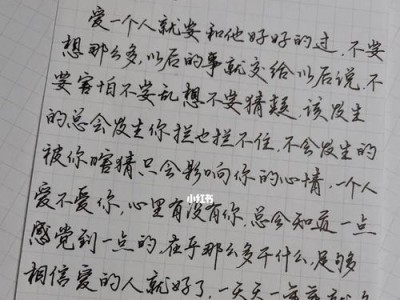 爱一个人就要和他好好的过.不要
想那么多,以后的事就交给以后说,不
要害怕不要乱想不要猜疑.该发生
的总会发生你拦也拦不住.不会发生的
被你瞎猜只会影响你的心情,一个人
爱不爱你,心里有没有你,总会知道一点
感觉到一点的.在乎那么多干什么,足够
相信爱的人就好了.一天天一年
小红书